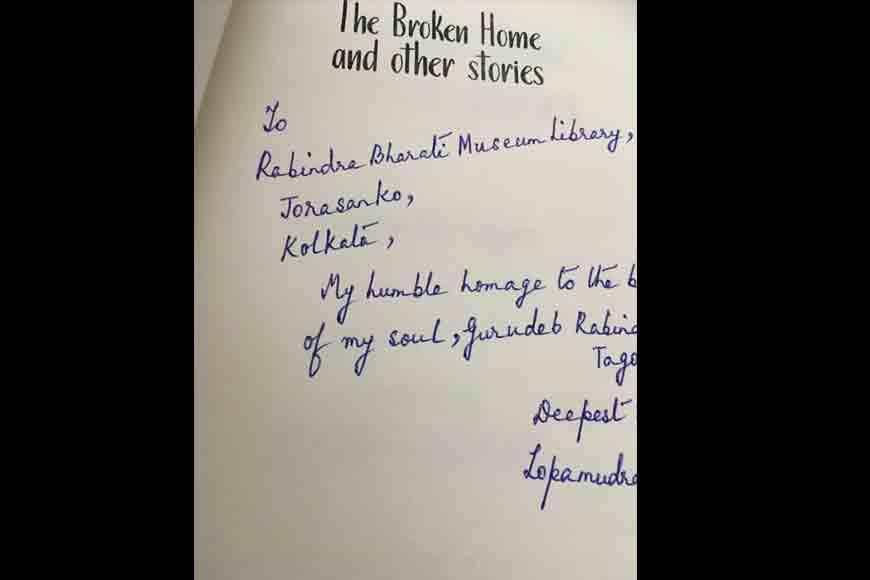 The Broken Home
and other stories
To
Rabindra Bharati Museum Library,
Jorasanko,
Kolkata,
My humble homage to the b
of my soul, Gurudeb Rabind
Tago
Deepest
Lopamudra